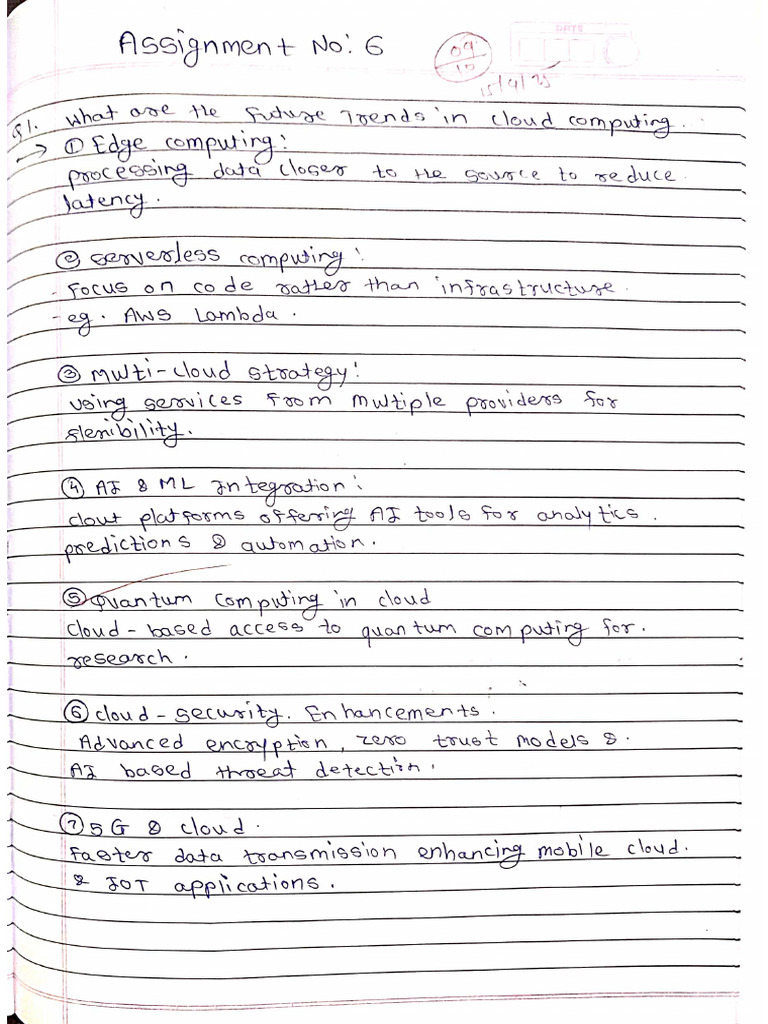 Assignment No: 6
09/10
DATE
15/4/25
Q1. What are the Future Trends in cloud computing.
→ ① Edge computing:
processing data closer to the source to reduce.
latency.
② serverless computing:
- Focus on code rather than infrastructure.
- eg. AWS Lambda.
③ Multi-cloud strategy:
using services from multiple providers for
flexibility.
④ AI & ML Integration:
clout platforms offering AI tools for analytics.
predictions & automation.
⑤ Quantum computing in cloud
cloud-based access to quantum computing for.
research.
⑥ cloud-security. Enhancements.
Advanced encryption, zero trust models &.
AI based threat detection.
⑦ 5G & cloud.
faster data transmission enhancing mobile cloud.
& IOT applications.